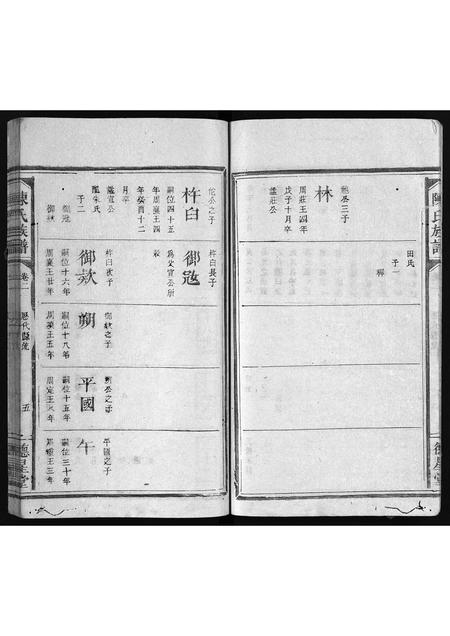 陳氏族譜
德星堂
鮑公三子
林
周莊王四年
戊子十月卒
諡莊公
田氏
子一
佗公之子
杵臼
嗣位四十五
年周襄王四
年癸酉十二
月卒
諡宣公
子二
御寇
御欵
杵臼長子
御寇
為父宣公所
殺
杵臼次子
御欵
嗣位十六年
周襄王廿年
御欵之子
朔
嗣位十八年
周襄王五年
朔公之子
平國
嗣位十五年
周定王八年
平國之子
午
嗣位三十年
陳氏族譜
卷二
歷代縣統
五
德星堂